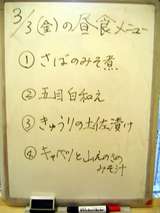 3/3(金)の昼食メニュー
① さばのみそ煮
② 五目白和え
③ きゅうりの土佐漬け
④ キャベツとえのきの
みそ汁